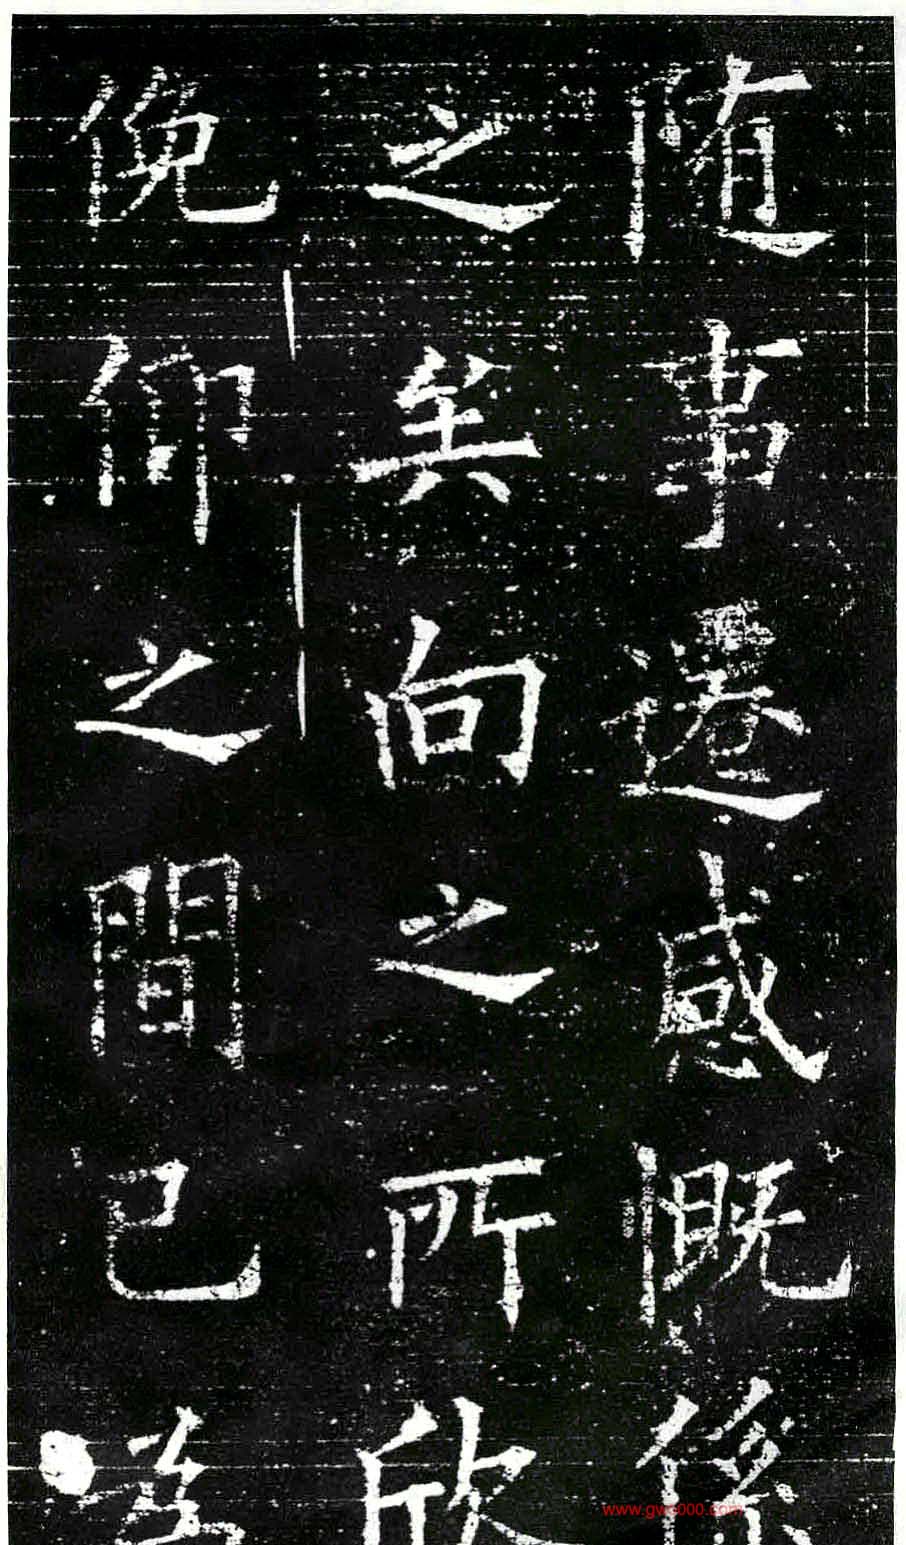 随事遷感慨係
之矣向之所欣
俛仰之間已為
www.gwo000.com